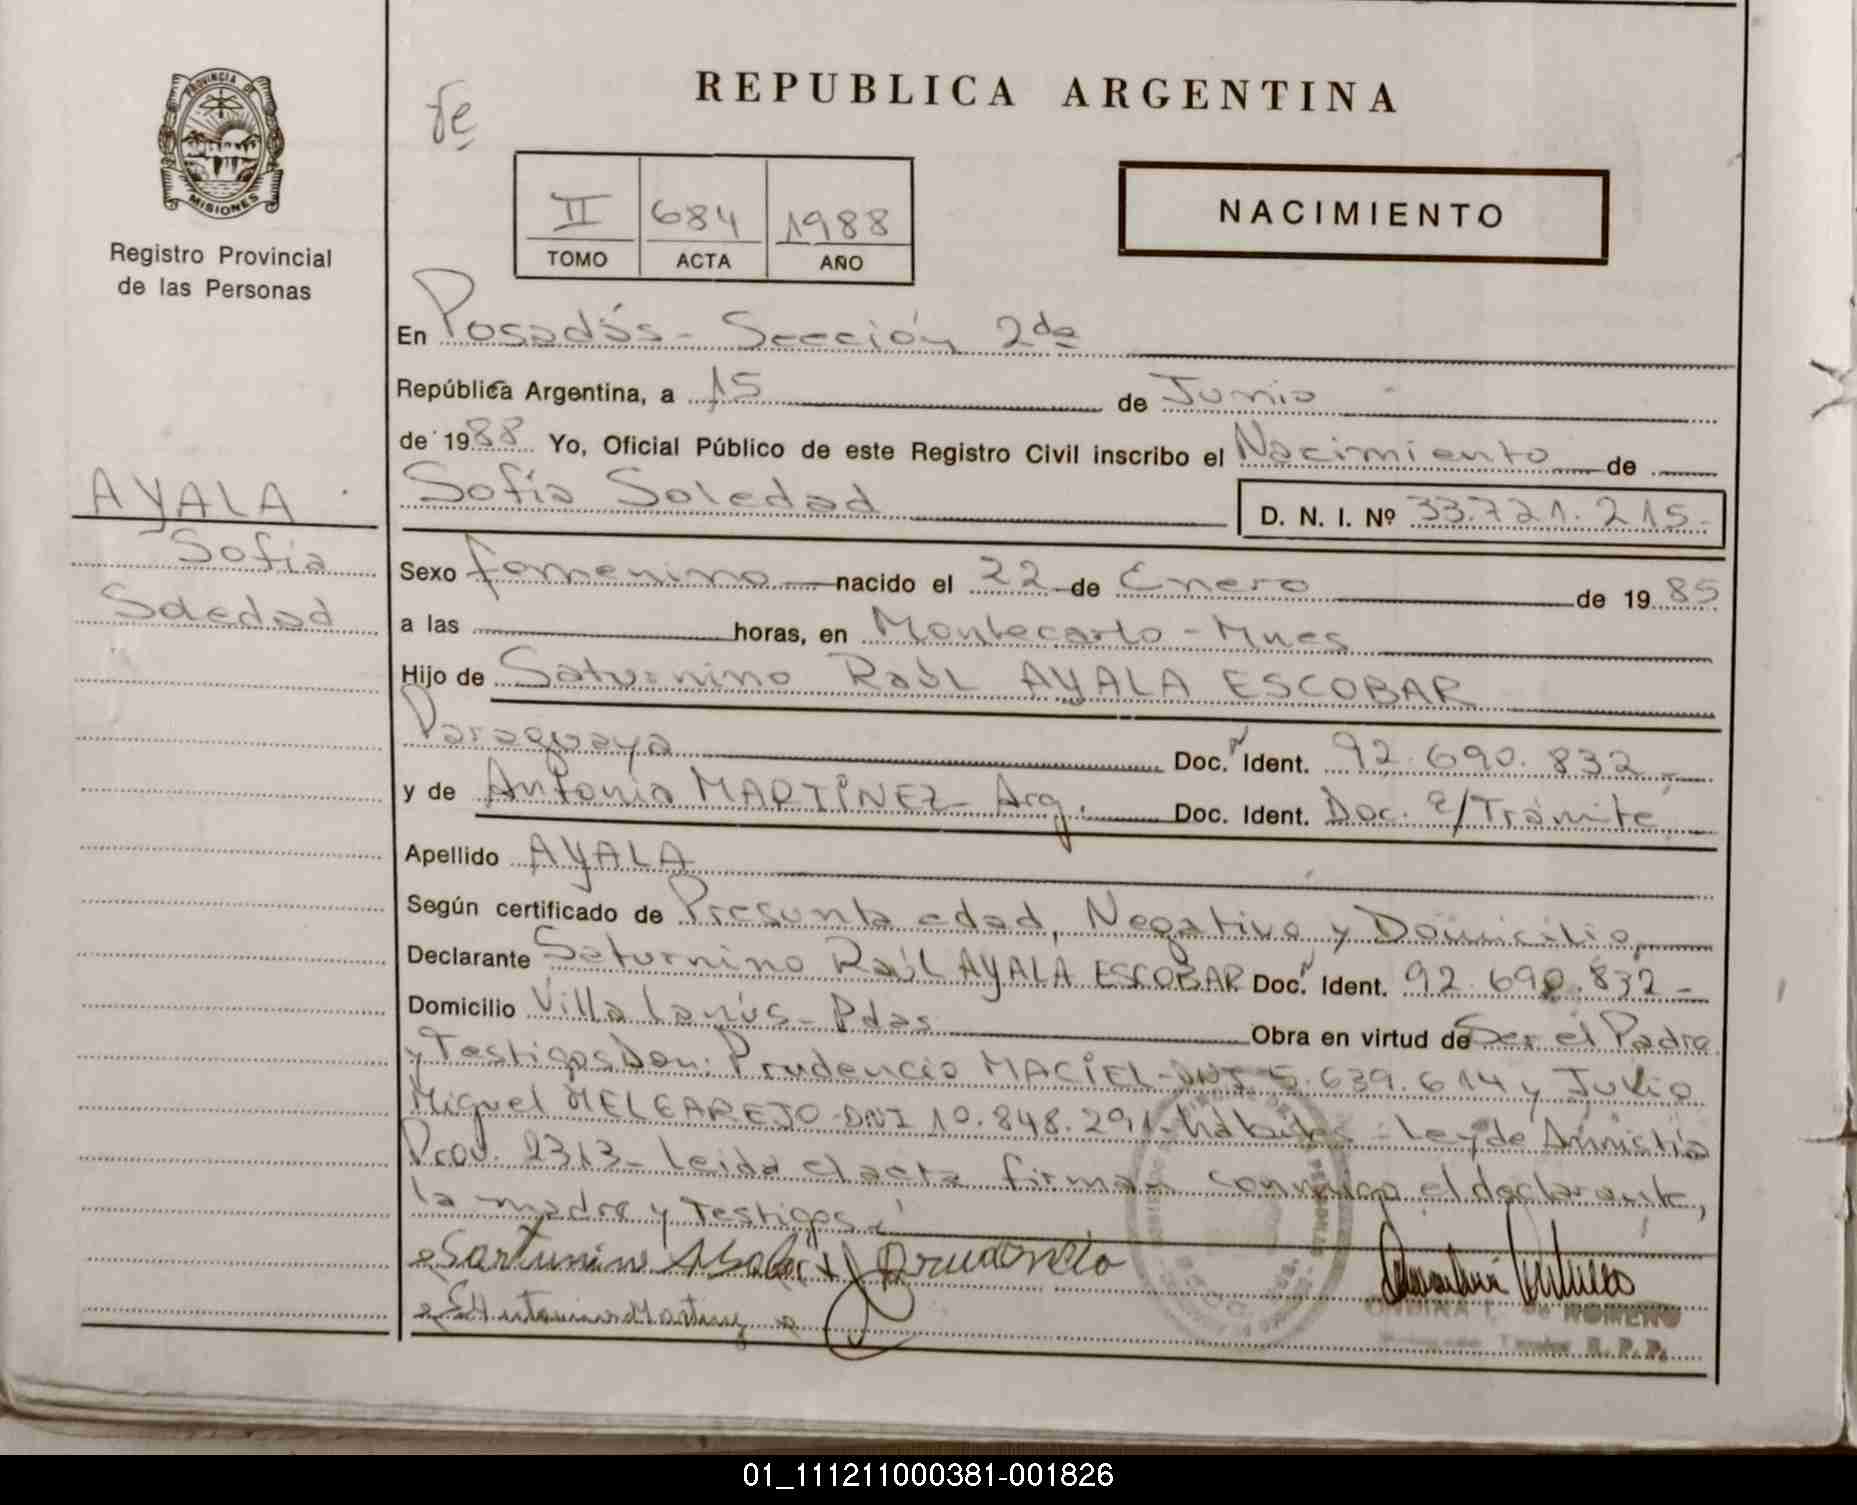 REPUBLICA ARGENTINA
PROVINCIA DE
MISIONES
Registro Provincial
de las Personas
II 684 1988
TOMO ACTA AÑO
NACIMIENTO
En Posadas - Sección 2da
República Argentina, a 15 de Junio
de 1988 Yo, Oficial Público de este Registro Civil inscribo el Nacimiento de
Sofía Soledad D. N. I. Nº 33.721.215-
AYALA
Sofía
Soledad
Sexo femenino nacido el 22 de Enero de 1985
a las horas, en Montecarlo - Mnes
Hijo de Saturnino Raúl AYALA ESCOBAR
Paraguaya Doc. Ident. 92.690.832-
y de Antonia MARTÍNEZ - Arg. Doc. Ident. Doc. e/Trámite
Apellido AYALA
Según certificado de Presunta edad, Negativo y Domicilio
Declarante Saturnino Raúl AYALA ESCOBAR Doc. Ident. 92.690.832-
Domicilio Villa Lanús - Pdas Obra en virtud de Ser el Padre
y Testigos Don: Prudencio MACIEL - DNI 5.639.614 y Julio
Miguel MELGAREJO - DNI 10.848.291 - hábiles - Ley de Amnistía
Prov. 2313 - Leída el acta firman conmigo el declarante,
la madre y Testigos
Prudencio
ROMERO
R. P. P.
01_111211000381-001826